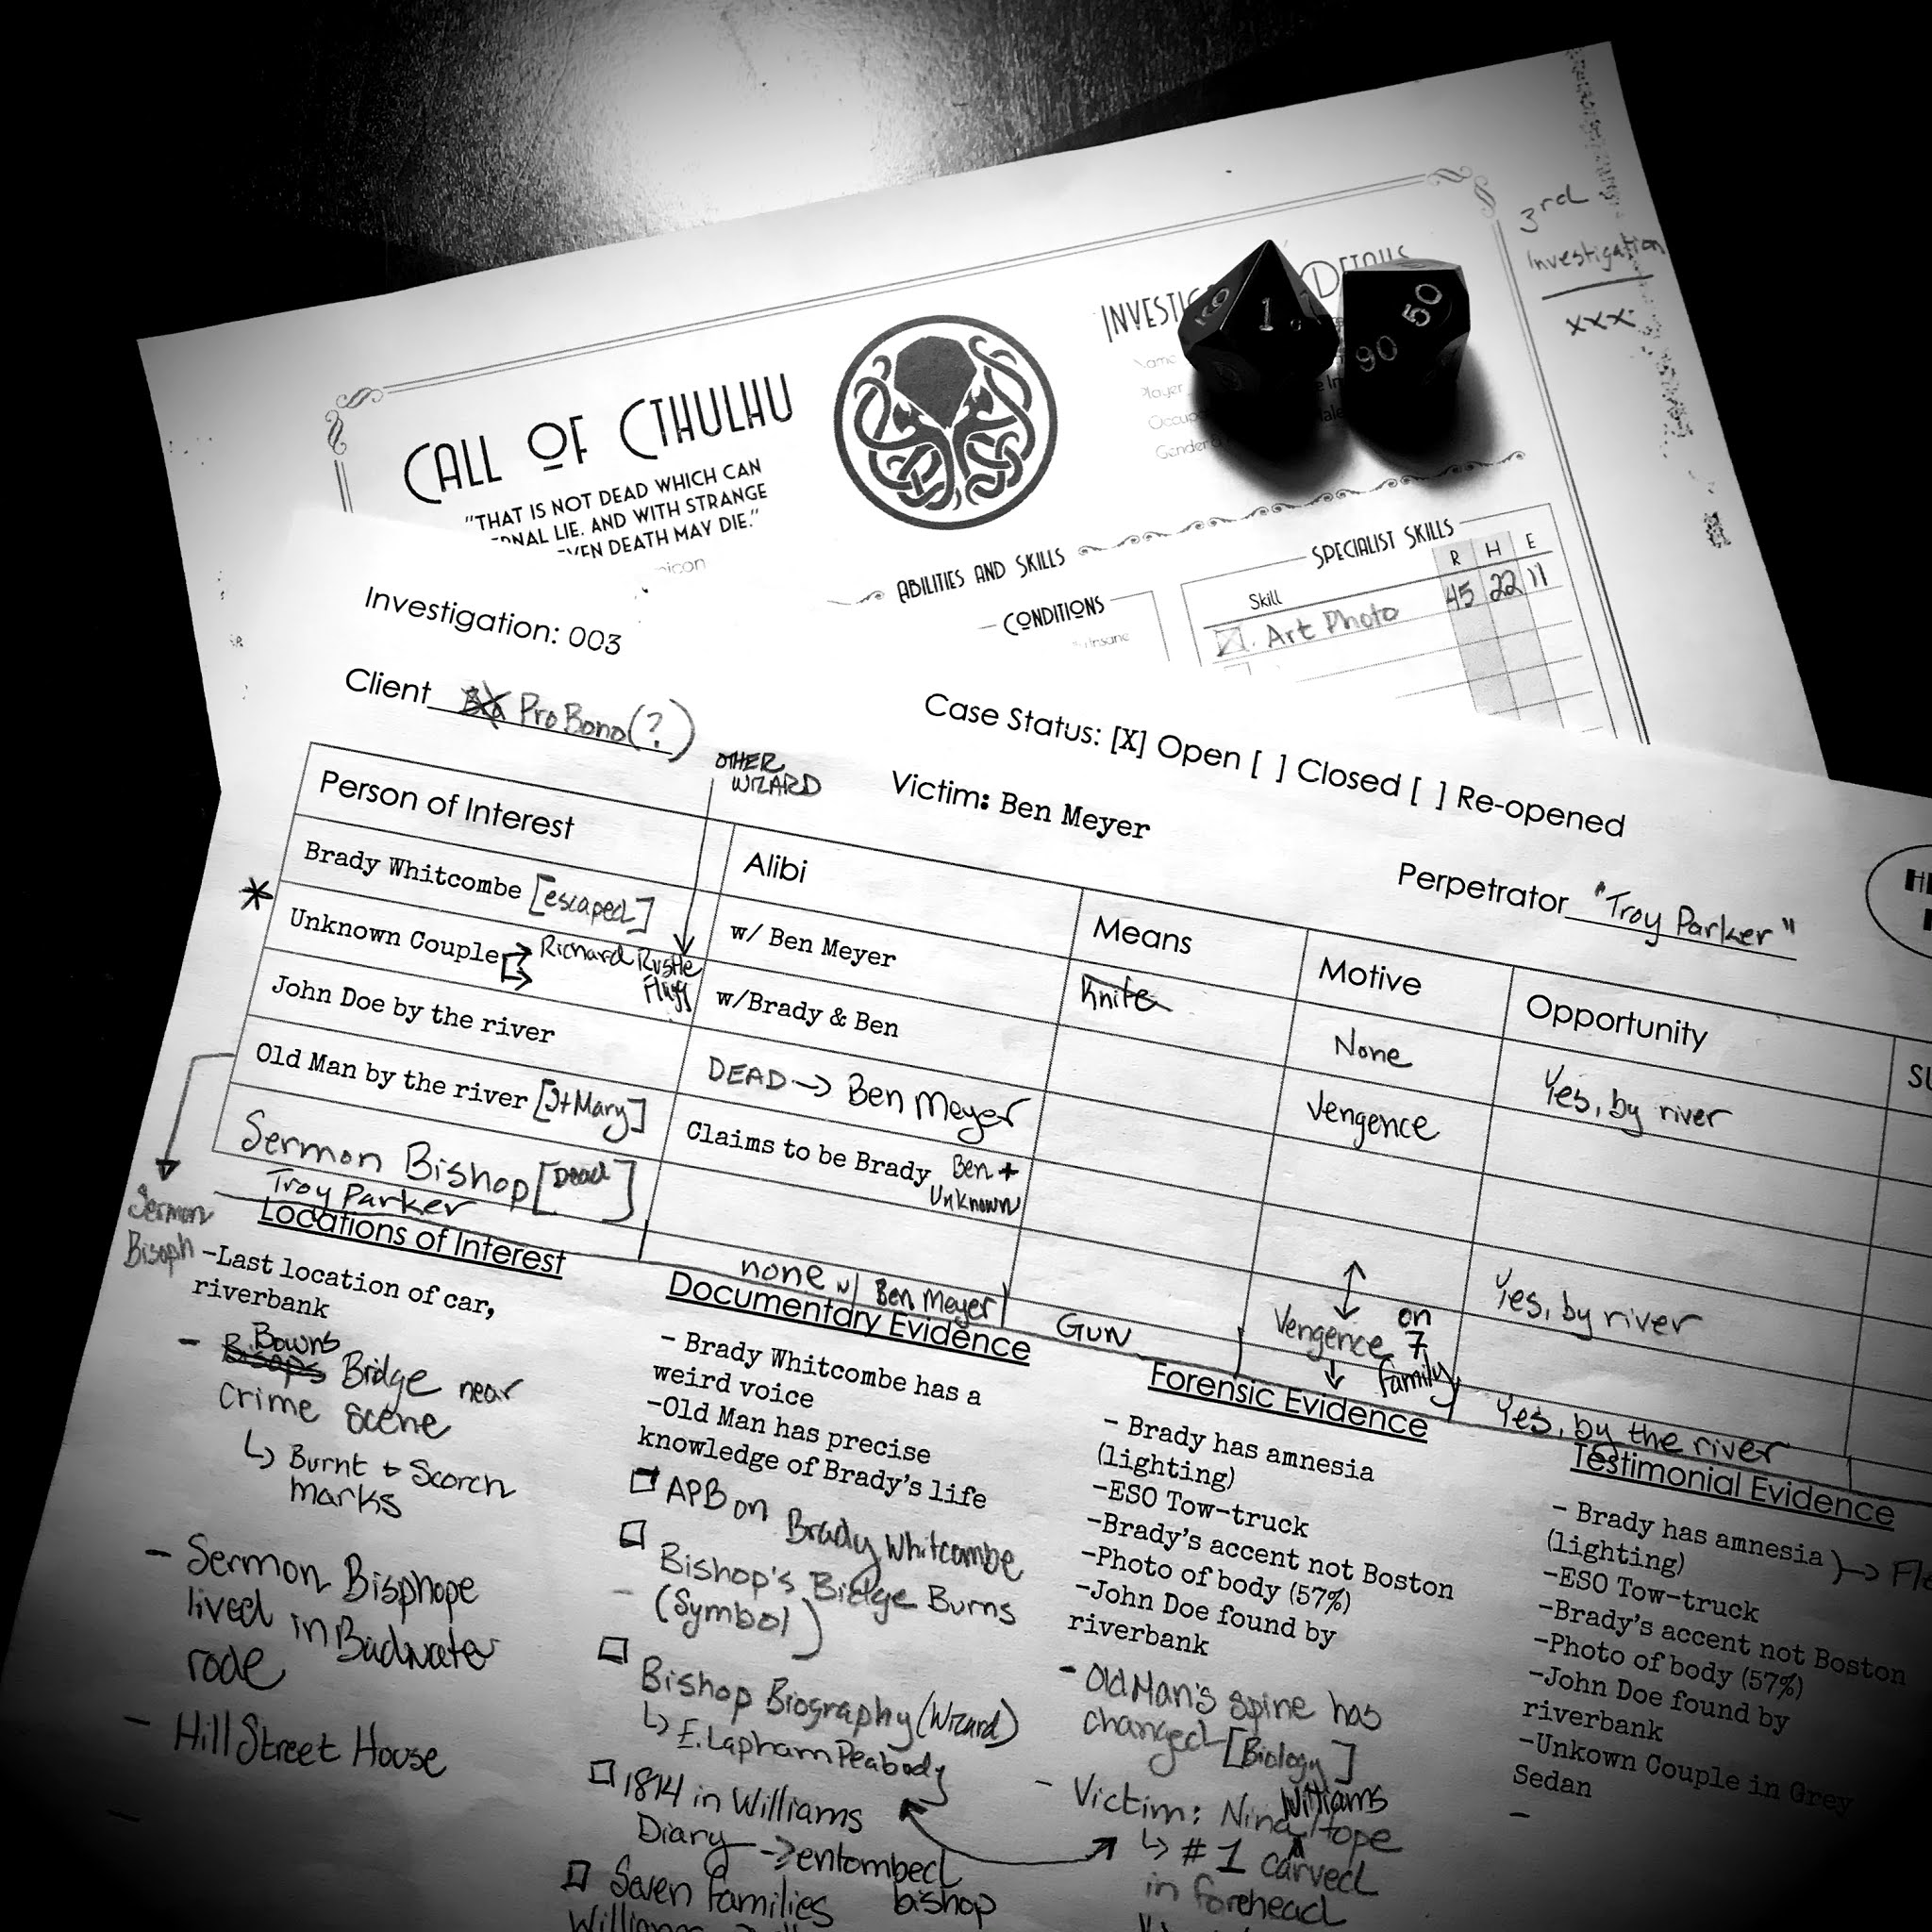 3rd
Investigation
xxx
CALL OF CTHULHU
"THAT IS NOT DEAD WHICH CAN
RNAL LIE. AND WITH STRANGE
EVEN DEATH MAY DIE."
nicon
INVESTIG DETAILS
Name
Player
Occup
Gender
1
50
90
ABILITIES AND SKILLS
CONDITIONS
Insane
SPECIALIST SKILLS
Skill R H E
Art Photo 45 22 11
Investigation: 003
Client Pro Bono (?)
Case Status: [X] Open [ ] Closed [ ] Re-opened
OTHER
WIZARD
Victim: Ben Meyer
Perpetrator "Troy Parker"
Person of Interest
Alibi
Means
Motive
Opportunity
SU
Brady Whitcombe [escaped]
w/ Ben Meyer
Knife
None
Yes, by river
* Unknown Couple → Richard Rustle
Flagg
w/Brady & Ben
Vengence
John Doe by the river
DEAD → Ben Meyer
Old Man by the river [St Mary]
Claims to be Brady Ben +
Unknown
Yes, by river
Sermon Bishop [Dead]
Vengence on
7
family
Troy Parker
none w/ Ben Meyer
Gun
Yes, by the river
Sermon
Bisoph
Locations of Interest
-Last location of car,
riverbank
- Bisops Bowns Bridge near
crime scene
↳ Burnt & Scorch
marks
- Sermon Bisphope
lived in Badwater
rode
- Hill Street House
Documentary Evidence
- Brady Whitcombe has a
weird voice
-Old Man has precise
knowledge of Brady's life
□ APB on Brady Whitcombe
□ Bishop's Bridge Burns
- (Symbol)
□ Bishop Biography (Wizard)
↳ E. Lapham Peabody
□ 1814 in Williams
Diary → entombed
bishop
□ Seven families
Forensic Evidence
- Brady has amnesia
(lighting)
-ESO Tow-truck
-Brady's accent not Boston
-Photo of body (57%)
-John Doe found by
riverbank
- Old Man's spine has
changed [Biology]
- Victim: Nina Williams Hope
↳ #1 carved
in forehead
Testimonial Evidence
- Brady has amnesia
(lighting)
-ESO Tow-truck
-Brady's accent not Boston
-Photo of body (57%)
-John Doe found by
riverbank
-Unkown Couple in Grey
Sedan
-